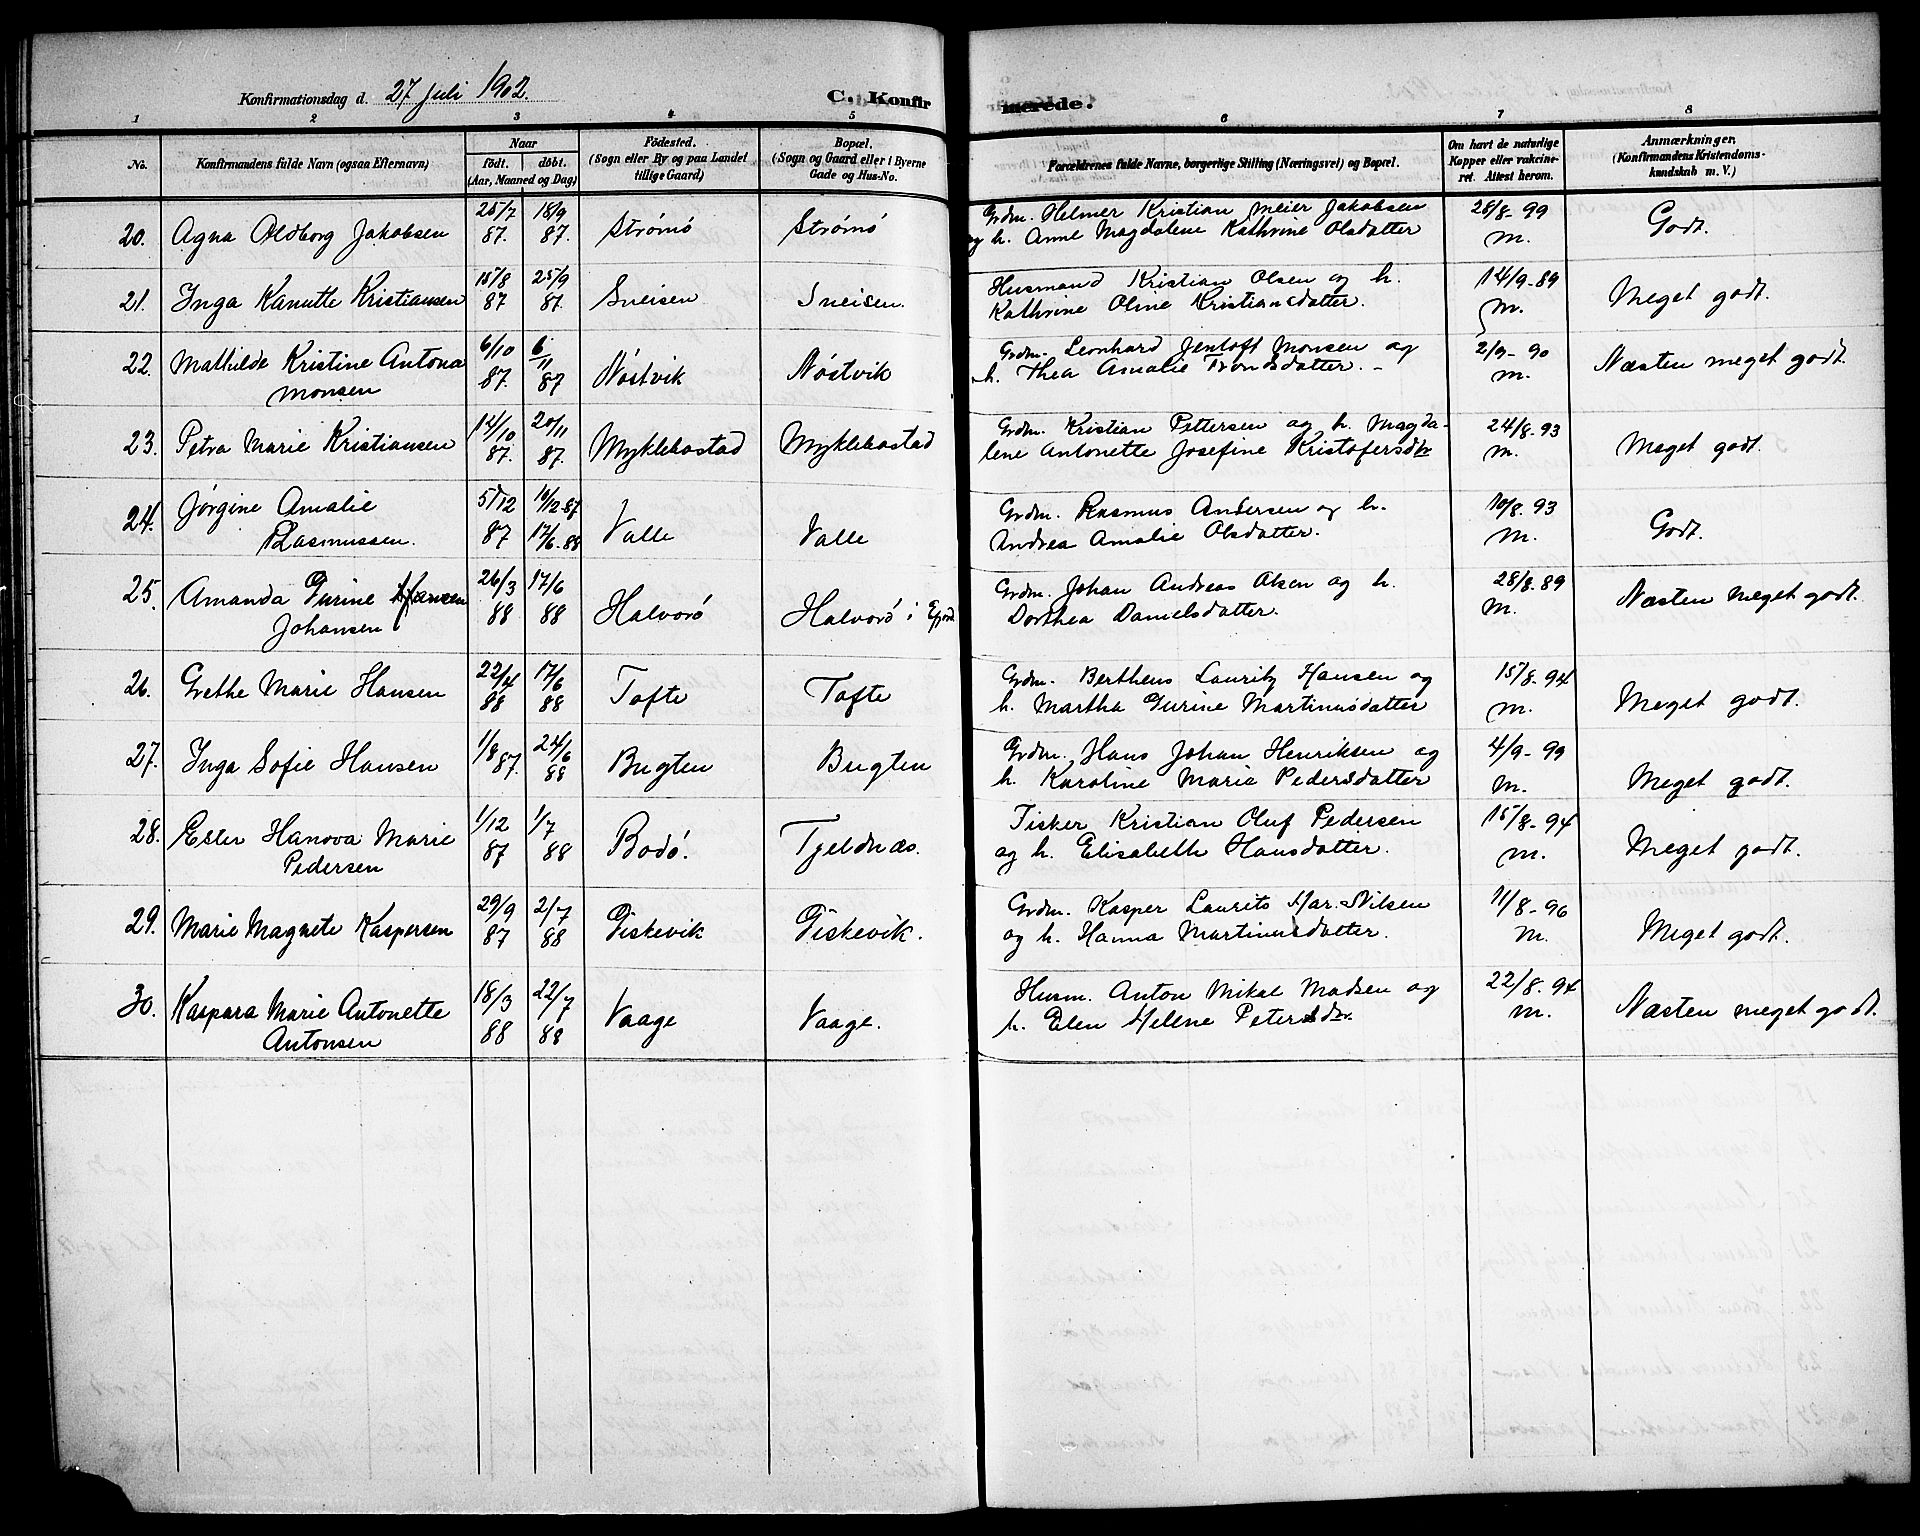 Konfirmationsdag d. 27 juli 1902.
C. Konfirmerede.
1 2 3 4 5 6 7 8
No.
Konfirmandens fulde Navn (ogsaa Efternavn)
Naar
født. døbt.
(Aar, Maaned og Dag)
Fødested.
(Sogn eller By og paa Landet
tillige Gaard)
Bopæl.
(Sogn og Gaard eller i Byerne
Gade og Hus-No.
Forældrenes fulde Navne, borgerlige Stilling (Næringsvei) og Bopæl.
Om havt de naturlige
Kopper eller vakcine-
ret. Attest herom.
Anmærkninger.
(Konfirmandens Kristendoms-
kundskab m. V.)
20. Agna Aldborg Jakobsen 25/7 87. 18/9 87. Strømø Strømø
Grdm. Helmer Kristian Meier Jakobsen
og h. Anne Magdalene Kathrine Olsdatter
28/8-99 m. Godt.
21. Inga Kanutte Kristiansen 15/8 87 25/9 87. Sneisen Sneisen.
Husmand Kristian Olsen og h.
Kathrine Oline Kristiansdatter.
14/9-89 m. Meget godt.
22. Mathilde Kristine Antona
Monsen 6/10 87. 6/11 87 Nøstvik Nøstvik
Grdm. Leonhard Jentoft Monsen og
h. Thea Amalie Trondsdatter.
2/9-90 m. Næsten meget godt.
23. Petra Marie Kristiansen 14/10 87. 20/11 87. Myklebostad Myklebostad
Grdm. Kristian Pettersen og h. Magda-
lene Antonette Josefine Kristofersdtr
24/8-93 m. Meget godt.
24. Jørgine Amalie
Rasmussen. 5/12 87 /12-87 17/6-88 Valle Valle
Grdm. Rasmus Andersen og h.
Andrea Amalie Olsdatter.
10/8-93 m. Godt.
25. Amanda Gurine
Johansen 26/3 88 17/6 88 Halvorø Halvorø i
Grdm. Johan Andreas Olsen og h.
Dorthea Danielsdatter.
28/8-89 m. Næsten meget godt.
26. Grethe Marie Hansen 22/4 88 17/6 88 Tofte Tofte
Grdm. Bertheus Lauritz Hansen og
h. Martha Gurine Martinusdatter
15/8-94 m. Meget godt.
27. Inga Sofie Hansen 1/8 87. 24/6 88 Bugten Bugten
Grdm. Hans Johan Henriksen og
h. Karoline Marie Pedersdatter
4/9-99 m. Meget godt.
28. Ester Hanova Marie
Pedersen 1/12 87 1/7 88 Bodø. Tjeldnæs.
Fisker Kristian Oluf Pedersen
og h. Elisabeth Hansdatter.
15/8-94 m. Meget godt.
29. Marie Magnete Kaspersen 29/9 87 2/7 88 Giskevik Giskevik.
Grdm. Kasper Laurits Mar. Nilsen
og h. Hanna Martinusdatter.
11/8-96 m. Meget godt.
30. Kaspara Marie Antonette
Antonsen 18/3 88 22/7 88 Vaage Vaage.
Husm. Anton Mikal Madsen og
h. Elen Helene Petersdtr.
22/8-94 m. Næsten meget godt.